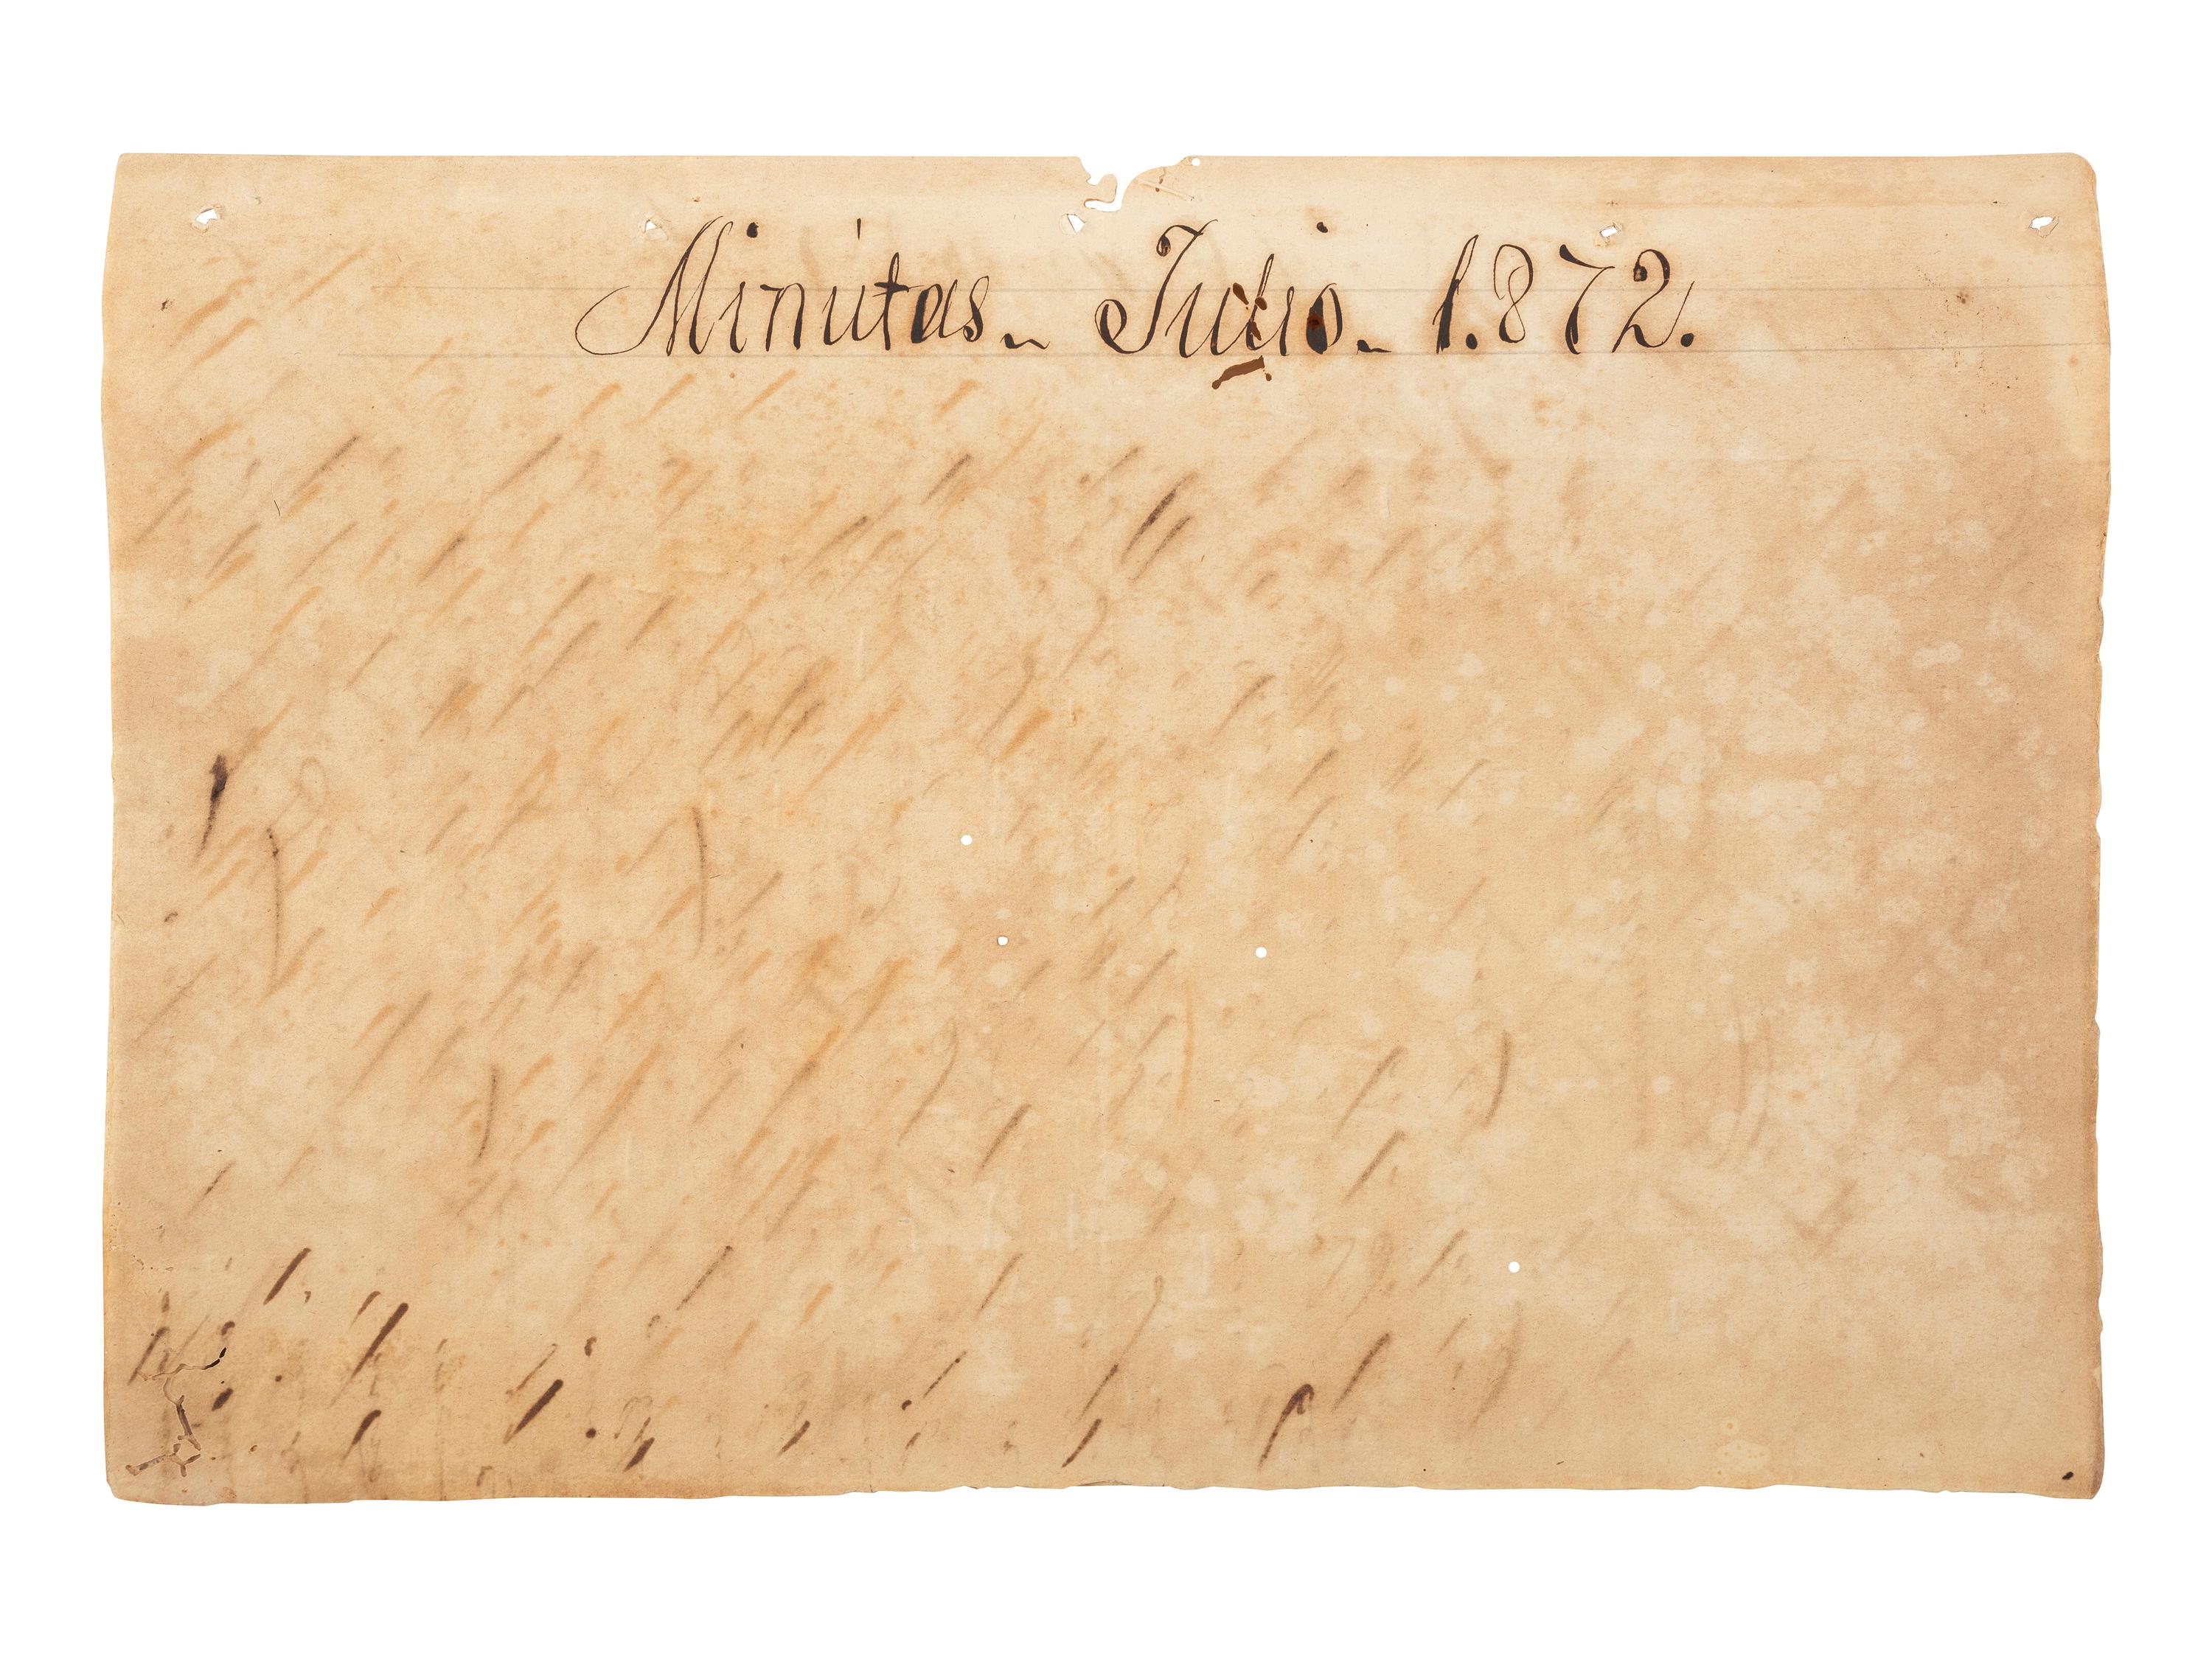 Minutas_ Julio_ 1.872.